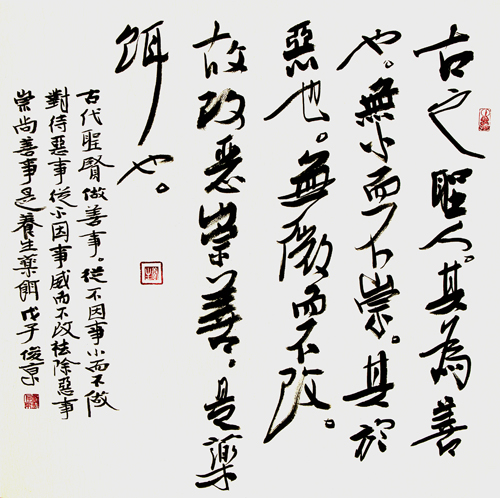 古之聖人。其為善
也。無小而不崇。其於
惡也。無微而不改。
故改恶崇善。是藥
餌也。
古代聖賢做善事。從不因事小而不做
對待惡事從不因事威而不改祛除惡事
崇尚善事是養生藥餌戊子俊京